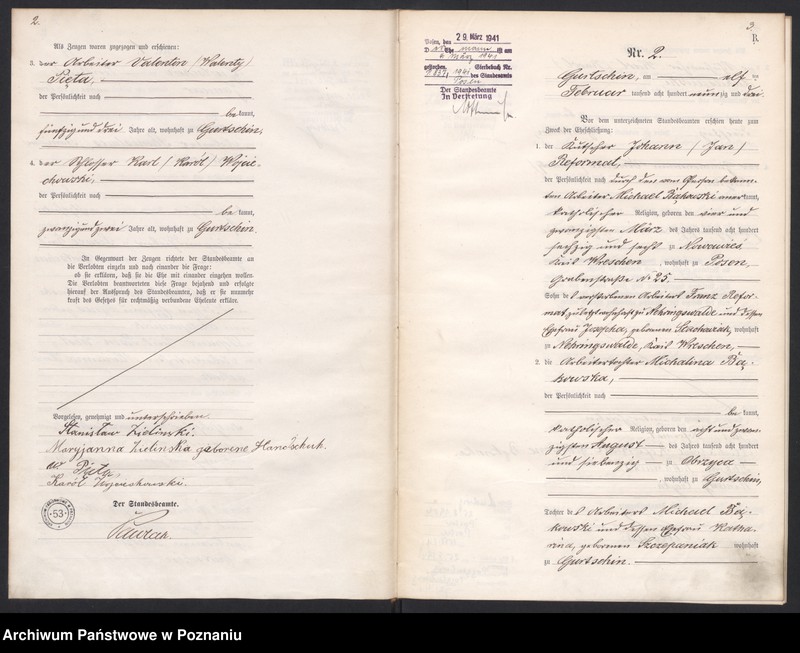 2.
Als Zeugen waren zugezogen und erschienen:
3. der Arbeiter Valentin /Walenty/
Pięta,
der Persönlichkeit nach
be kannt,
fünfzig und drei Jahre alt, wohnhaft zu Gurtschin;
4. der Schlosser Karl /Karól/ Wojcie-
chowski,
der Persönlichkeit nach
be kannt,
zwanzig und zwei Jahre alt, wohnhaft zu Gurtschin.
In Gegenwart der Zeugen richtete der Standesbeamte an
die Verlobten einzeln und nach einander die Frage:
ob sie erklären, daß sie die Ehe mit einander eingehen wollen.
Die Verlobten beantworteten diese Frage bejahend und erfolgte
hierauf der Ausspruch des Standesbeamten, daß er sie nunmehr
kraft des Gesetzes für rechtmäßig verbundene Eheleute erkläre.
Vorgelesen, genehmigt und unterschrieben.
Stanisław Zieliński.
Maryjanna Zielinska geborene
Pięta
Karól
Der Standesbeamte.
53
3
B.
Posen, den 29. März 1941
Ehe mann ist am
6 März 1941
gestorben, Sterbebuch Nr.
1941 des Standesamts
Posen
Der Standesbeamte
In Vertretung
Nr. 2.
Gurtschin, am elf ten
Februar tausend acht hundert neunzig und drei.
Vor dem unterzeichneten Standesbeamten erschien heute zum
Zweck der Eheschließung:
1. der Kutscher Johann /Jan/
Reformat,
der Persönlichkeit nach durch den von Person bekann-
ten Arbeiter Michael Bąkowski anerkannt,
katholischer Religion, geboren den vier und
zwanzigsten März des Jahres tausend acht hundert
sechzig und sechs zu Nowawieś
Kreis Wreschen, wohnhaft zu Posen,
Grabenstraße No 25.
Sohn des verstorbenen Arbeiters Franz Refor-
mat, zuletzt wohnhaft zu Nehringswalde und dessen
Ehefrau Josepha, geborenen wohnhaft
zu Nehringswalde, Kreis Wreschen,
2. die Arbeitertochter Michalina Bą-
kowska,
der Persönlichkeit nach
be kannt,
katholischer Religion, geboren den acht und zwan-
zigsten August des Jahres tausend acht hundert
und siebenzig zu Obrzyca
, wohnhaft zu Gurtschin,
Tochter des Arbeiters Michael Bą-
kowski und dessen Ehefrau Katha-
rina, geborenen Szczepaniak wohnhaft
zu Gurtschin.
Archiwum Państwowe w Poznaniu